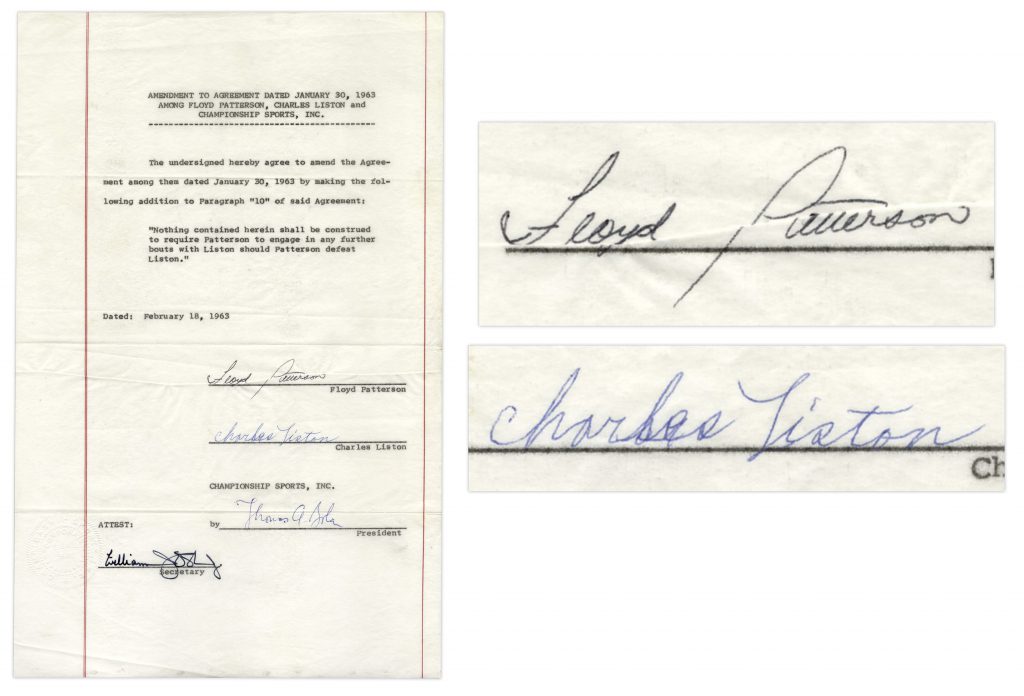 AMENDMENT TO AGREEMENT DATED JANUARY 30, 1963
AMONG FLOYD PATTERSON, CHARLES LISTON and
CHAMPIONSHIP SPORTS, INC.
The undersigned hereby agree to amend the Agree-
ment among them dated January 30, 1963 by making the fol-
lowing addition to Paragraph "10" of said Agreement:
"Nothing contained herein shall be construed
to require Patterson to engage in any further
bouts with Liston should Patterson defeat
Liston."
Dated: February 18, 1963
Floyd Patterson
Floyd Patterson
Charles Liston
Charles Liston
CHAMPIONSHIP SPORTS, INC.
ATTEST:
by Thomas A
President
William
Secretary
Floyd Patterson
Charles Liston
Ch